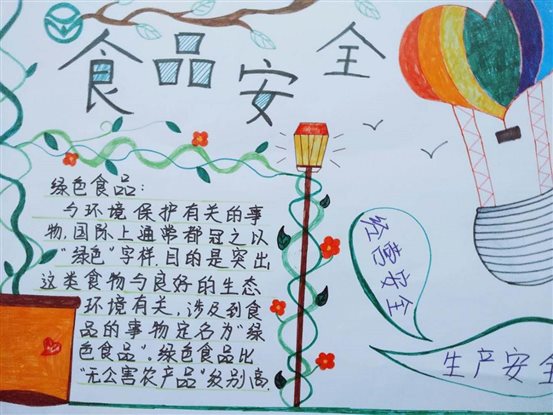 食品安全
绿色食品:
与环境保护有关的事
物,国际上通常都冠之以
“绿色”字样,目的是突出
这类食物与良好的生态
环境有关,涉及到食
品的事物定名为“绿
色食品”。绿色食品比
“无公害农产品”级别高,
经营安全
生产安全